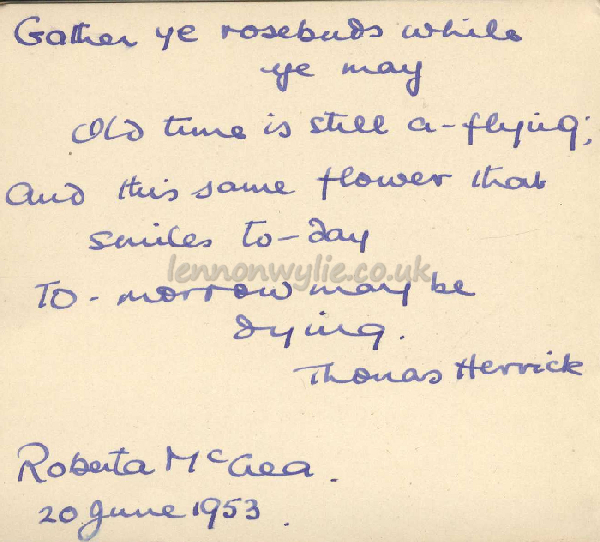 Gather ye rosebuds while
ye may
Old time is still a-flying;
And this same flower that
smiles to-day
lennonwylie.co.uk
To-morrow may be
dying.
Thomas Herrick
Roberta McCrea.
20 June 1953.